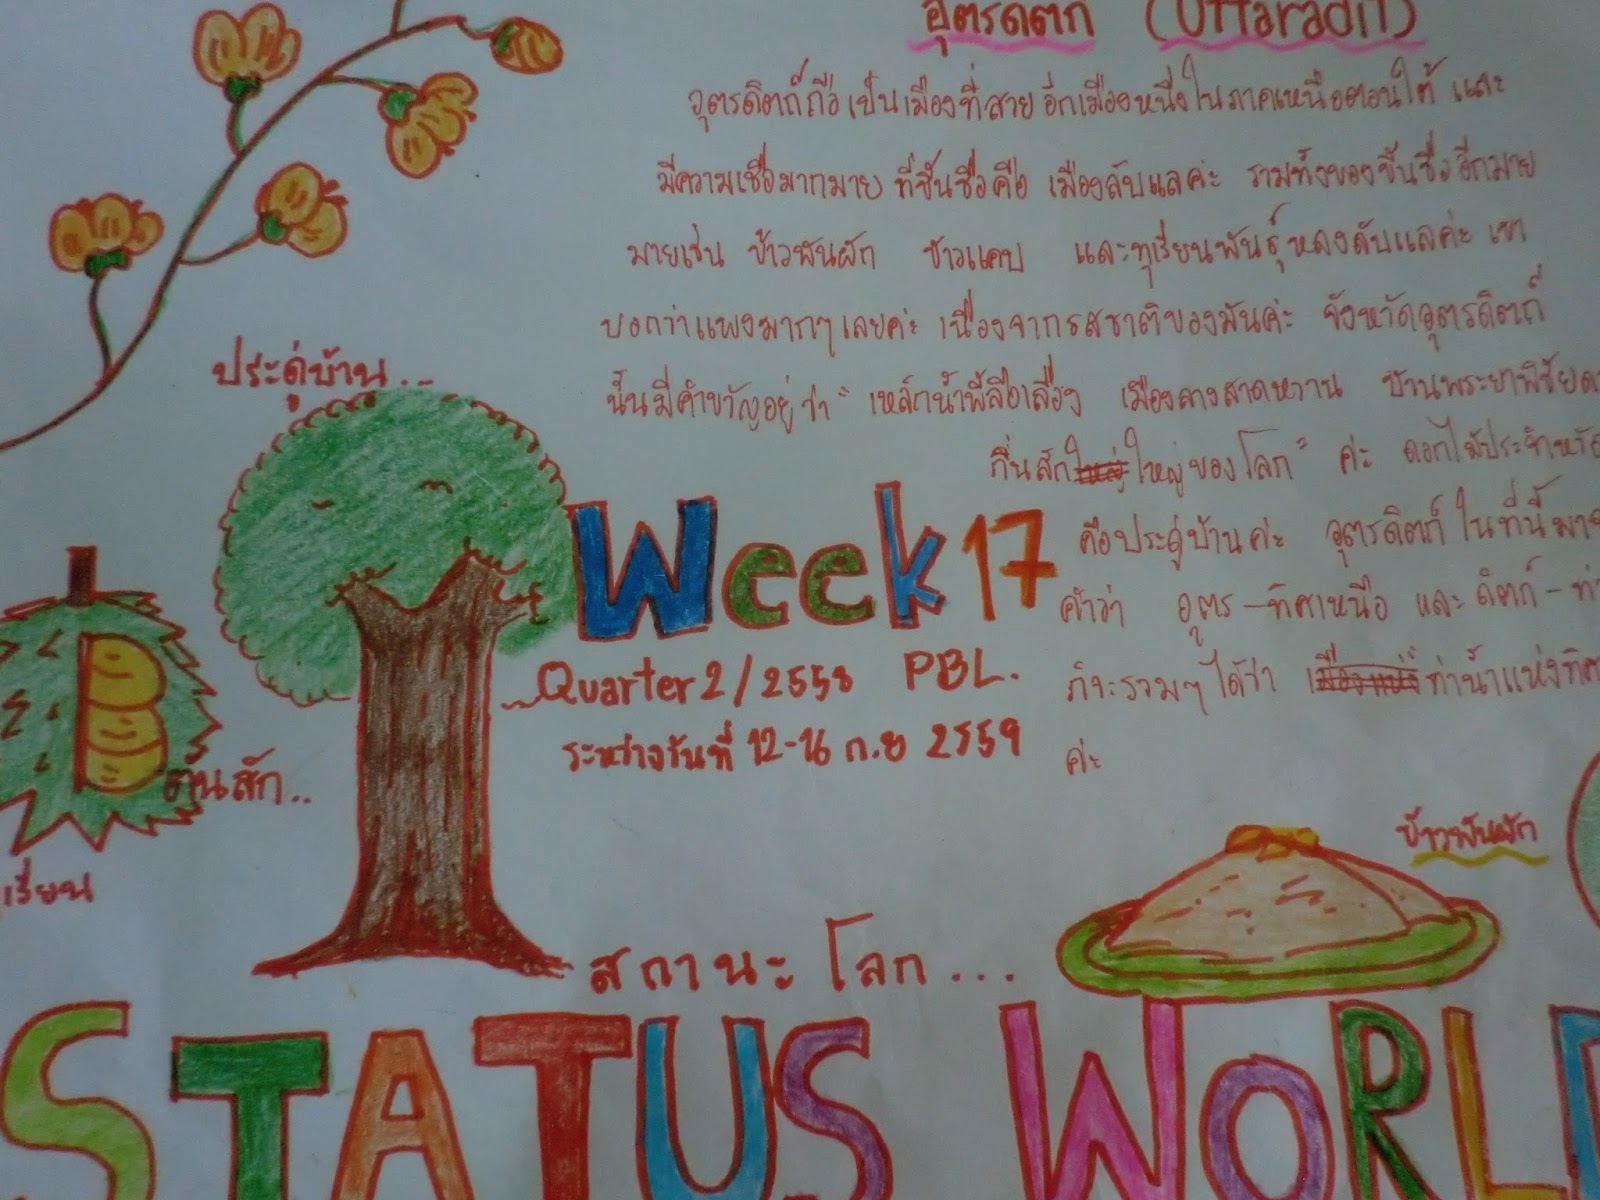 อุตรดิตถ์ (Uttaradit)
อุตรดิตถ์ถือเป็นเมืองที่สวยอีกเมืองหนึ่งในภาคเหนือตอนใต้ และ
มีความเชื่อมากมาย ที่ขึ้นชื่อคือ เมืองลับแลค่ะ รวมทั้งของขึ้นชื่ออีกมาย
มายเช่น ข้าวพันผัก ข้าวแคบ และทุเรียนพันธุ์หลงลับแลค่ะ เขา
บอกว่าแพงมากๆเลยค่ะ เนื่องจากรสชาติของมันค่ะ จังหวัดอุตรดิตถ์
นั้นมีคำขวัญอยู่ว่า "เหล็กน้ำพี้ลือเลื่อง เมืองลางสาดหวาน บ้านพระยาพิชัยดา
ถิ่นสักใหญ่ของโลก" ค่ะ ดอกไม้ประจำหวัด
คือประดู่บ้านค่ะ อุตรดิตถ์ ในที่นี้มาจ
คำว่า อุตร-ทิศเหนือ และ ดิตถ์-ท่า
ก็จะรวมๆได้ว่า ท่าน้ำแห่งทิศ
ค่ะ
ประดู่บ้าน..
Week 17
Quarter 2/2558 PBL.
ระหว่างวันที่ 12-16 ก.ย 2559
ต้นสัก..
เรียน
ข้าวพันผัก
สถานะโลก...
STATUS WORLD